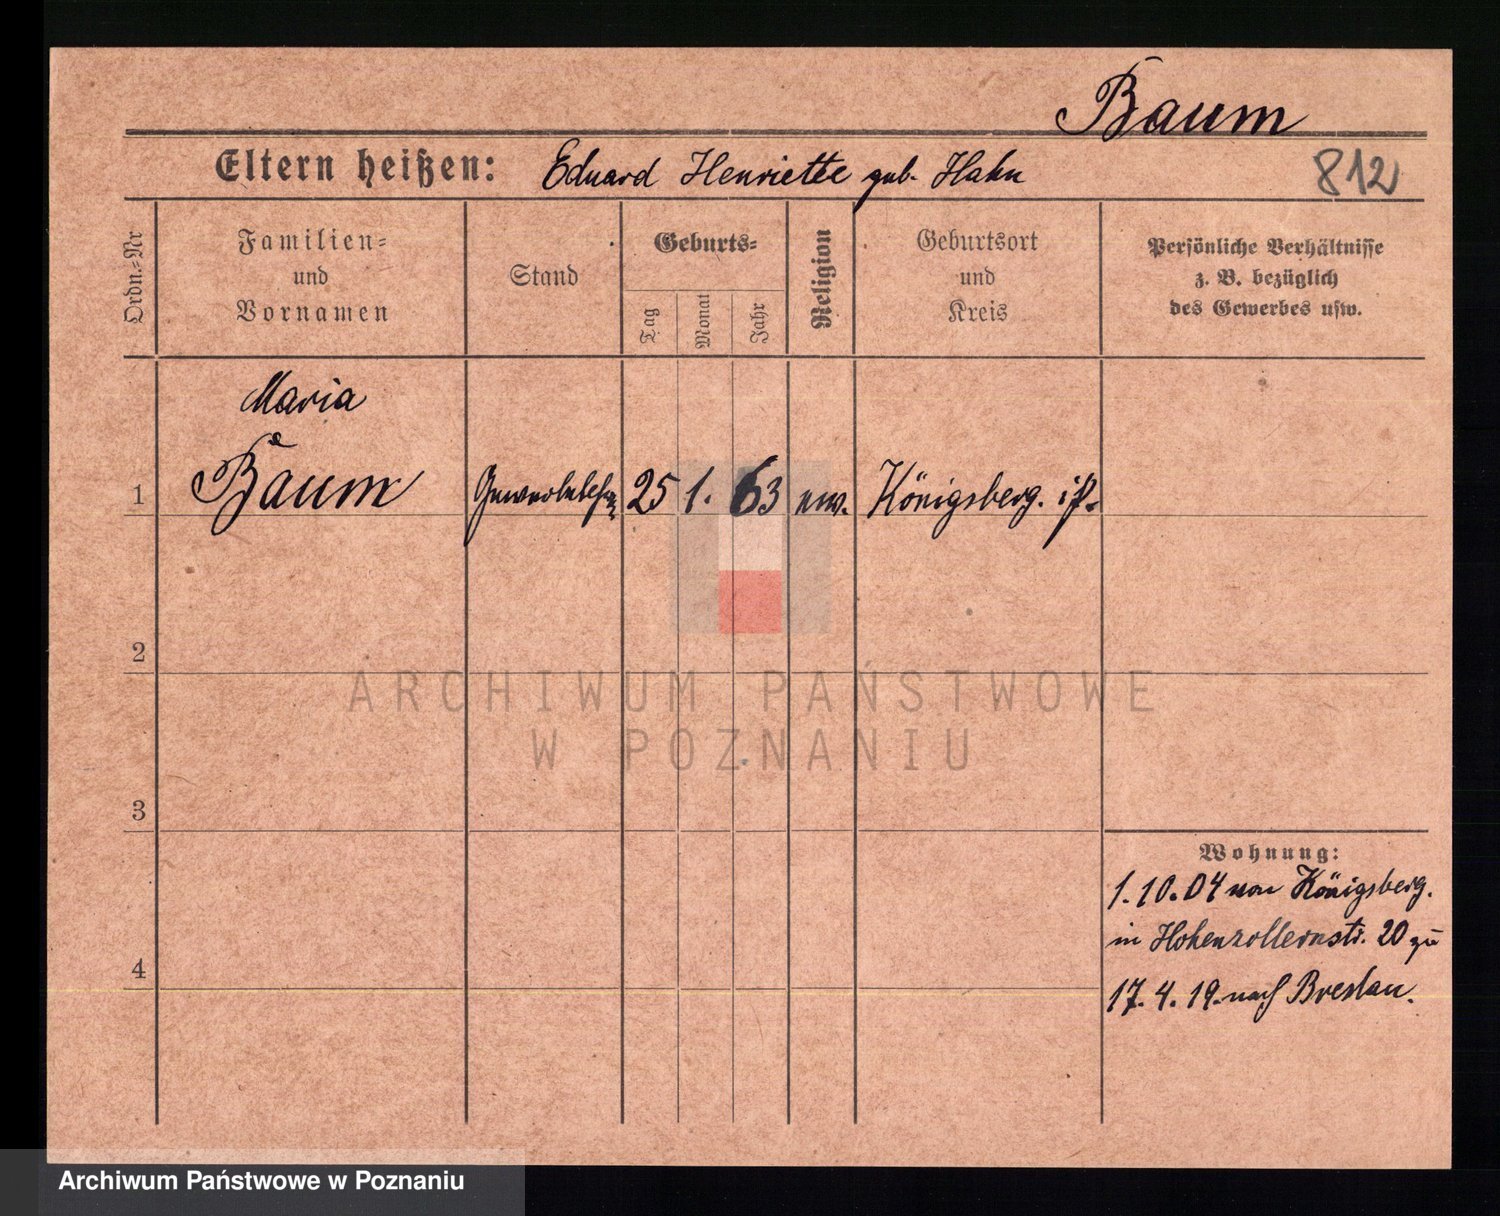 Baum
Eltern heißen: Eduard Henriette geb. Hahn
812
Ordn.=Nr
Familien=
und
Vornamen
Stand
Geburts=
Tag
Monat
Jahr
Religion
Geburtsort
und
Kreis
Persönliche Verhältnisse
z. B. bezüglich
des Gewerbes usw.
Maria
1 Baum 25 1. 63 Königsberg. i/P.
2
ARCHIWUM PAŃSTWOWE
W POZNANIU
3
Wohnung:
1.10.04 von Königsberg.
in Hohenzollernstr. 20 zu
4
17.4.19. nach Breslau.
Archiwum Państwowe w Poznaniu